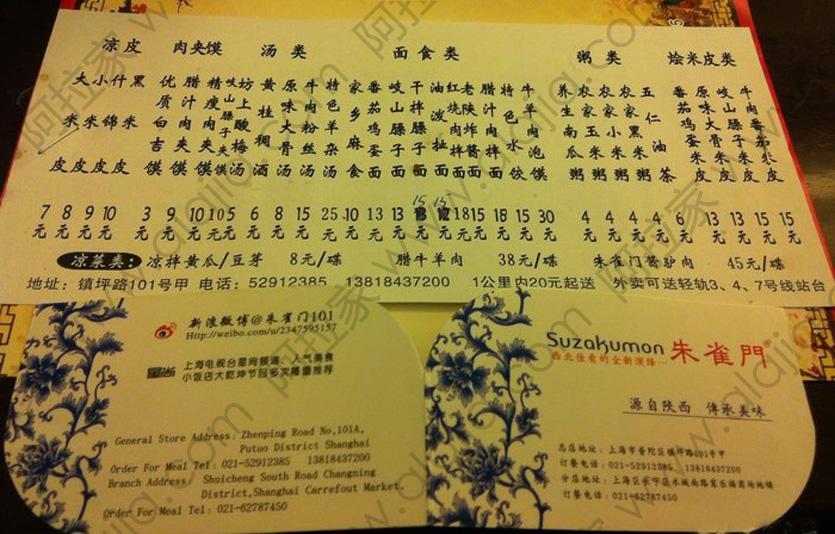 凉皮 肉夹馍 汤类 面食类 粥类 烩米皮类
大米皮
小米皮
什锦皮
黑米皮
优质白吉馍
腊汁肉夹馍
精瘦肉夹馍
岐山臊子夹馍
坊上酸梅汤
黄桂稠酒
原味大骨汤
牛肉粉丝汤
特色羊杂汤
家乡麻食
番茄鸡蛋面
岐山臊子面
干拌臊子面
油泼扯面
红烧肉拌面
老陕炸酱面
腊汁肉拌面
特色水饺
牛羊肉泡馍
养生南瓜粥
农家玉米粥
农家小米粥
农家黑米粥
五仁油茶
番茄鸡蛋米皮
原味大骨米皮
岐山臊子米皮
牛肉番茄米皮
7元 8元 9元 10元 3元 9元 10元 10元 5元 6元 8元 15元 25元 10元 13元 13元 15元 15元 18元 15元 18元 15元 30元 4元 4元 4元 4元 6元 13元 13元 15元 15元
凉菜类: 凉拌黄瓜/豆芽 8元/碟 腊牛羊肉 38元/碟 朱雀门酱驴肉 45元/碟
地址: 镇坪路101号甲 电话: 52912385 13818437200 1公里内20元起送 外卖可送轻轨3、4、7号线站台
新浪微博@朱雀门101
Http://weibo.com/u/2347595157
星尚 上海电视台星尚频道、人气美食
小饭店大乾坤节目多次隆重推荐
General Store Address: Zhenping Road No,101A,
Putuo District Shanghai
Order For Meal Tel: 021-52912385 13818437200
Branch Address: Shuicheng South Road Changning
District,Shanghai Carrefout Market.
Order For Meal Tel: 021-62787450
Suzakumon 朱雀門
西北佳肴的全新演绎...
源自陕西 传承美味
总店地址: 上海市普陀区镇坪路101号甲
订餐电话: 021-52912385 13818437200
分店地址: 上海长宁区水城南路家乐福商场地铺
订餐电话: 021-62787450
阿拉家 www.alajia.com